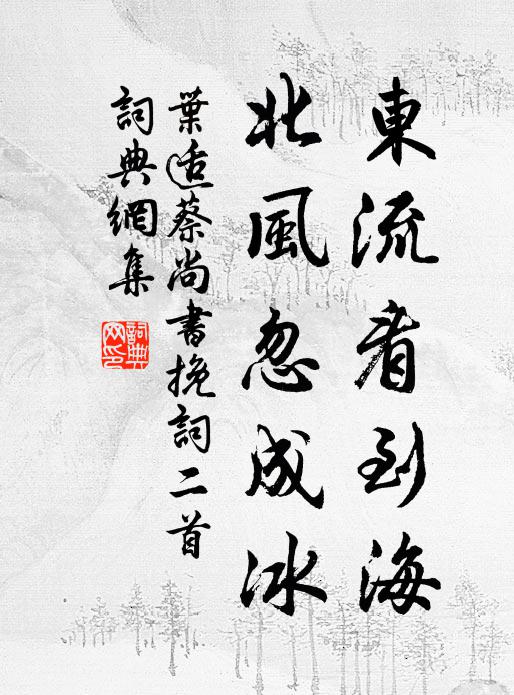 東流看到海
北風忽成冰
葉适蔡尚書挽詞二首
詞典網集
詞典
网印